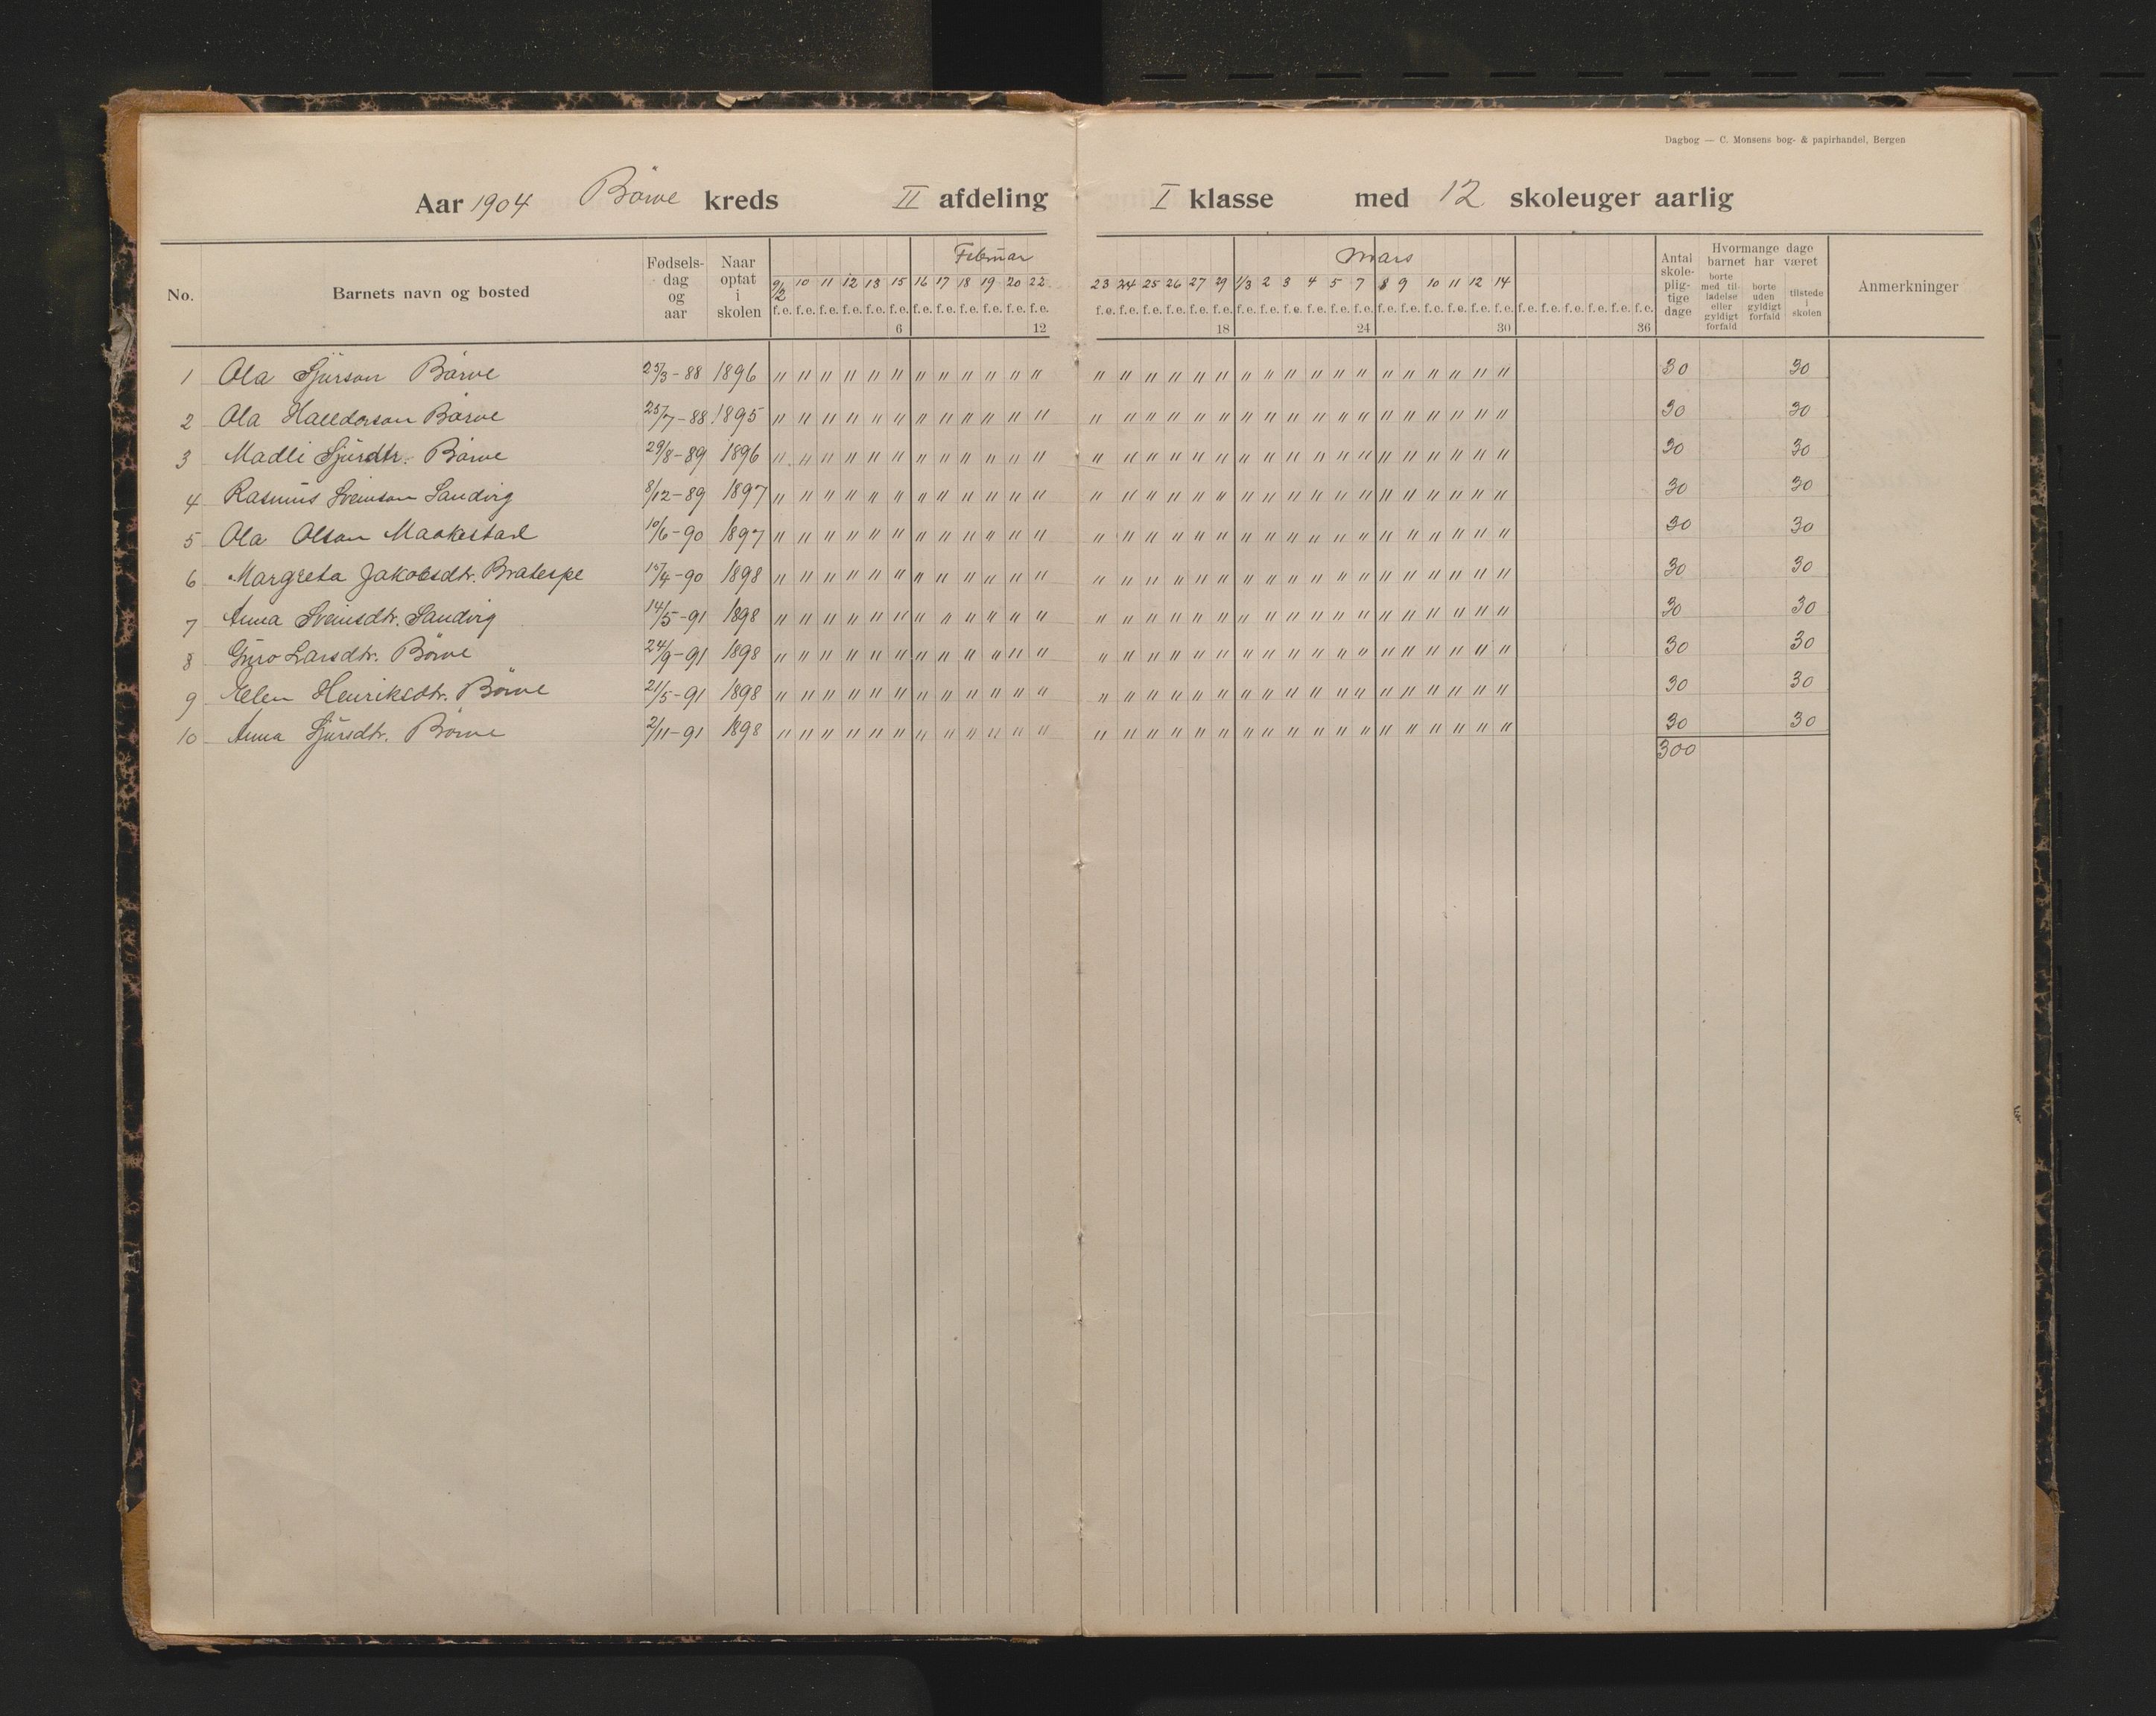 Dagbog — C. Monsens bog- & papirhandel, Bergen
Aar 1904 Börve kreds II afdeling I klasse med 12 skoleuger aarlig
No. Barnets navn og bosted Fødsels-dag og aar Naar optat i skolen Februar Mars Antal skole-plig-tige dage Hvormange dage barnet har været Anmerkninger
borte med til-ladelse eller gyldigt forfald borte uden gyldigt forfald tilstede i skolen
9/2 10 11 12 13 15 16 17 18 19 20 22 23 24 25 26 27 29 1/3 2 3 4 5 7 8 9 10 11 12 14
f.e. f.e. f.e. f.e. f.e. f.e. f.e. f.e. f.e. f.e. f.e. f.e. f.e. f.e. f.e. f.e. f.e. f.e. f.e. f.e. f.e. f.e. f.e. f.e. f.e. f.e. f.e. f.e. f.e. f.e. f.e. f.e. f.e. f.e. f.e. f.e.
6 12 18 24 30 36
1 Ola Sjurson Börve 25/3-88 1896 " " " " " " " " " " " " " " " " " " " " " " " " " " " " " " 30 30
2 Ola Halldorson Börve 25/7-88 1895 " " " " " " " " " " " " " " " " " " " " " " " " " " " " " " 30 30
3 Madli Sjurdtr. Börve 29/8-89 1896 " " " " " " " " " " " " " " " " " " " " " " " " " " " " " " 30 30
4 Rasmus Sveinson Sandvig 8/12-89 1897 " " " " " " " " " " " " " " " " " " " " " " " " " " " " " " 30 30
5 Ola Olson Maakestad 10/6-90 1897 " " " " " " " " " " " " " " " " " " " " " " " " " " " " " " 30 30
6 Margreta Jakobsdtr. Bratespe 15/4-90 1898 " " " " " " " " " " " " " " " " " " " " " " " " " " " " " " 30 30
7 Anna Sveinsdtr. Sandvig 14/5-91 1898 " " " " " " " " " " " " " " " " " " " " " " " " " " " " " " 30 30
8 Guro Larsdtr. Börve 24/9-91 1898 " " " " " " " " " " " " " " " " " " " " " " " " " " " " " " 30 30
9 Elen Henriksdtr. Börve 21/5-91 1898 " " " " " " " " " " " " " " " " " " " " " " " " " " " " " " 30 30
10 Anna Sjursdtr. Börve 2/11-91 1898 " " " " " " " " " " " " " " " " " " " " " " " " " " " " " " 30 30
300